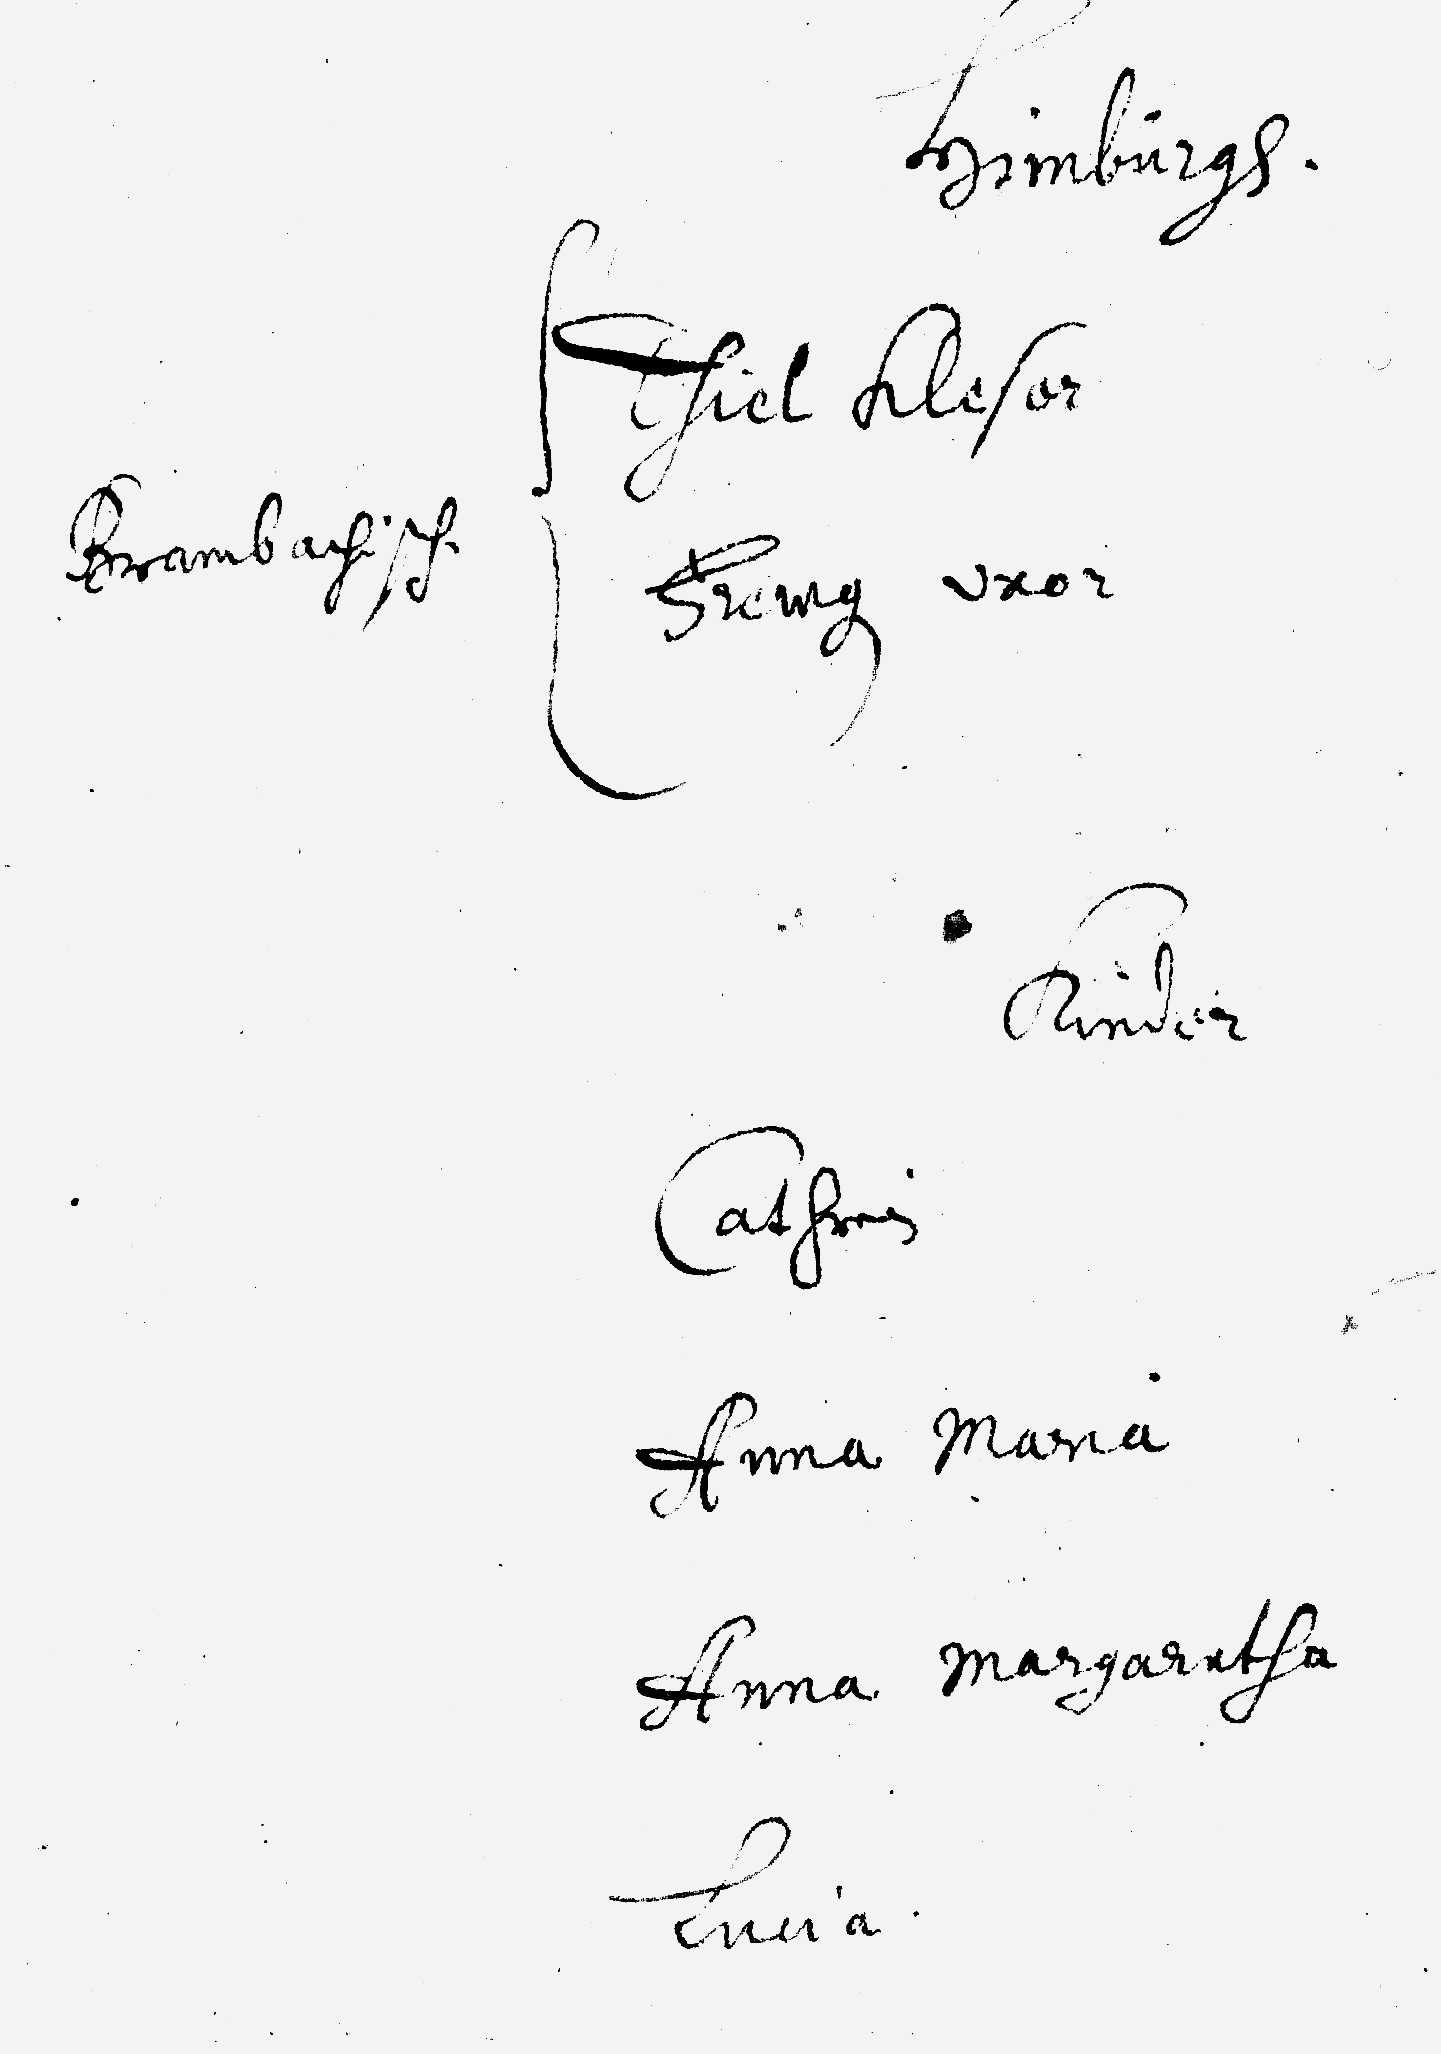 Limburgs.
Thiel Kleser
Brambachisch.
Frewg uxor
Kinder
Cathrin
Anna Maria
Anna Margaretha
Lucia.